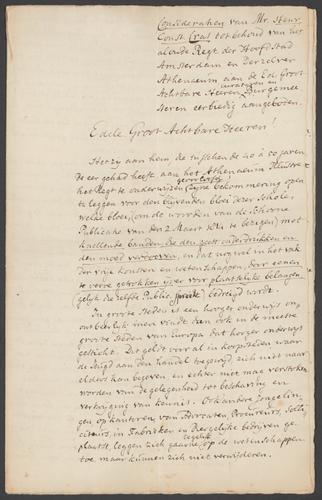 Consideratien van Mr. Henr.
Const. Cras tot behoud van het
al oude Regt der Hoofdstad
Amsterdam en Derzelver
Athenaeum aan de Ed. Groot
Achtbare Heeren Burgemee
Curatoren en
steren eerbiedig aangeboten.
Edele Groot Achtbare Heeren!
Het zy aan hem, die tusschen de 40 à 50 jaren
de eer gehad heeft aan het Athenaeum Illustre
het Regt te onderwijzen, zyne bekommering open
te leggen voor den blijvenden bloei dezer Schole,
welke bloei, (om de woorden van de
Publicatie van den 2 Maart te bezigen) met
knellende banden, die den geest onderdrukken en
den moed verdooven, en dat nog wel in het vak
der vrije kunsten en wetenschappen, door eenen
te verre getrokken yver voor plaatselijke belangen
gelijk die zelfde Public. spreekt bedreigd wordt.
In groote steden is een hooger onderwijs on
ontbeerlijk, men vindt dan ook in de meeste
groote steden van Europa dat hooger onderwijs
gesticht. Dit geldt vooral in koopsteden, waar
de Jeugd aan den handel toegewijd zich niet naar
elders kan begeven, en echter niet mag verstoken
worden van de gelegenheid tot beschaving en
verkrijging van kennis. Ook andere Jongelin
gen op kantoren van Notarissen, Procureurs, Solli
citeurs, in Fabrieken en diergelijke bedrijven ge
plaatst, leggen zich gaarne op de wetenschappen
toe, maar kunnen zich niet verwijderen.